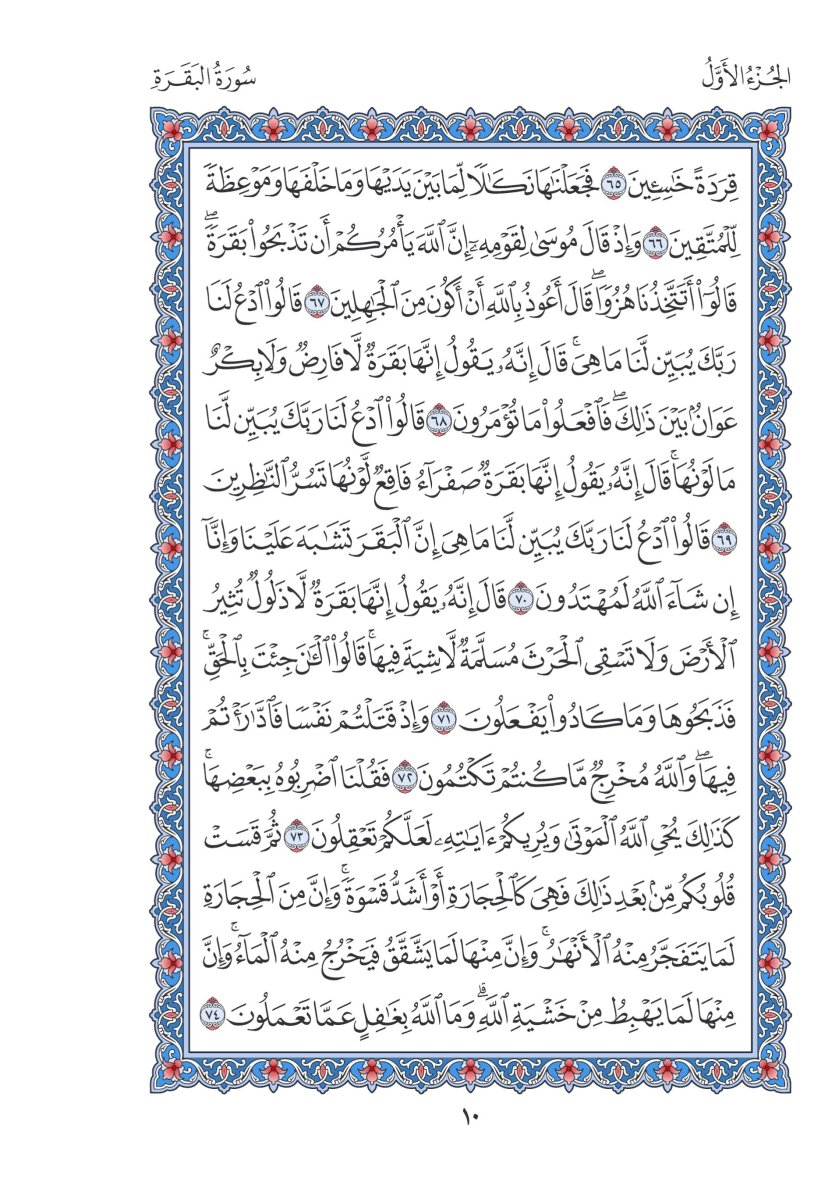 الجُزْءُ الأَوَّلُ
سُورَةُ البَقَرَةِ
قِرَدَةً خَٰسِـِٔينَ ٦٥ فَجَعَلۡنَٰهَا نَكَٰلٗا لِّمَا بَيۡنَ يَدَيۡهَا وَمَا خَلۡفَهَا وَمَوۡعِظَةٗ
لِّلۡمُتَّقِينَ ٦٦ وَإِذۡ قَالَ مُوسَىٰ لِقَوۡمِهِۦٓ إِنَّ ٱللَّهَ يَأۡمُرُكُمۡ أَن تَذۡبَحُواْ بَقَرَةٗۖ
قَالُوٓاْ أَتَتَّخِذُنَا هُزُوٗاۖ قَالَ أَعُوذُ بِٱللَّهِ أَنۡ أَكُونَ مِنَ ٱلۡجَٰهِلِينَ ٦٧ قَالُواْ ٱدۡعُ لَنَا
رَبَّكَ يُبَيِّن لَّنَا مَا هِيَۚ قَالَ إِنَّهُۥ يَقُولُ إِنَّهَا بَقَرَةٞ لَّا فَارِضٞ وَلَا بِكۡرٌ
عَوَانُۢ بَيۡنَ ذَٰلِكَۖ فَٱفۡعَلُواْ مَا تُؤۡمَرُونَ ٦٨ قَالُواْ ٱدۡعُ لَنَا رَبَّكَ يُبَيِّن لَّنَا
مَا لَوۡنُهَاۚ قَالَ إِنَّهُۥ يَقُولُ إِنَّهَا بَقَرَةٞ صَفۡرَآءُ فَاقِعٞ لَّوۡنُهَا تَسُرُّ ٱلنَّٰظِرِينَ
٦٩ قَالُواْ ٱدۡعُ لَنَا رَبَّكَ يُبَيِّن لَّنَا مَا هِيَ إِنَّ ٱلۡبَقَرَ تَشَٰبَهَ عَلَيۡنَا وَإِنَّآ
إِن شَآءَ ٱللَّهُ لَمُهۡتَدُونَ ٧٠ قَالَ إِنَّهُۥ يَقُولُ إِنَّهَا بَقَرَةٞ لَّا ذَلُولٞ تُثِيرُ
ٱلۡأَرۡضَ وَلَا تَسۡقِي ٱلۡحَرۡثَ مُسَلَّمَةٞ لَّا شِيَةَ فِيهَاۚ قَالُواْ ٱلۡـَٰٔنَ جِئۡتَ بِٱلۡحَقِّۚ
فَذَبَحُوهَا وَمَا كَادُواْ يَفۡعَلُونَ ٧١ وَإِذۡ قَتَلۡتُمۡ نَفۡسٗا فَٱدَّٰرَٰٔتُمۡ
فِيهَاۖ وَٱللَّهُ مُخۡرِجٞ مَّا كُنتُمۡ تَكۡتُمُونَ ٧٢ فَقُلۡنَا ٱضۡرِبُوهُ بِبَعۡضِهَاۚ
كَذَٰلِكَ يُحۡيِ ٱللَّهُ ٱلۡمَوۡتَىٰ وَيُرِيكُمۡ ءَايَٰتِهِۦ لَعَلَّكُمۡ تَعۡقِلُونَ ٧٣ ثُمَّ قَسَتۡ
قُلُوبُكُم مِّنۢ بَعۡدِ ذَٰلِكَ فَهِيَ كَٱلۡحِجَارَةِ أَوۡ أَشَدُّ قَسۡوَةٗۚ وَإِنَّ مِنَ ٱلۡحِجَارَةِ
لَمَا يَتَفَجَّرُ مِنۡهُ ٱلۡأَنۡهَٰرُۚ وَإِنَّ مِنۡهَا لَمَا يَشَّقَّقُ فَيَخۡرُجُ مِنۡهُ ٱلۡمَآءُۚ وَإِنَّ
مِنۡهَا لَمَا يَهۡبِطُ مِنۡ خَشۡيَةِ ٱللَّهِۗ وَمَا ٱللَّهُ بِغَٰفِلٍ عَمَّا تَعۡمَلُونَ ٧٤
١٠